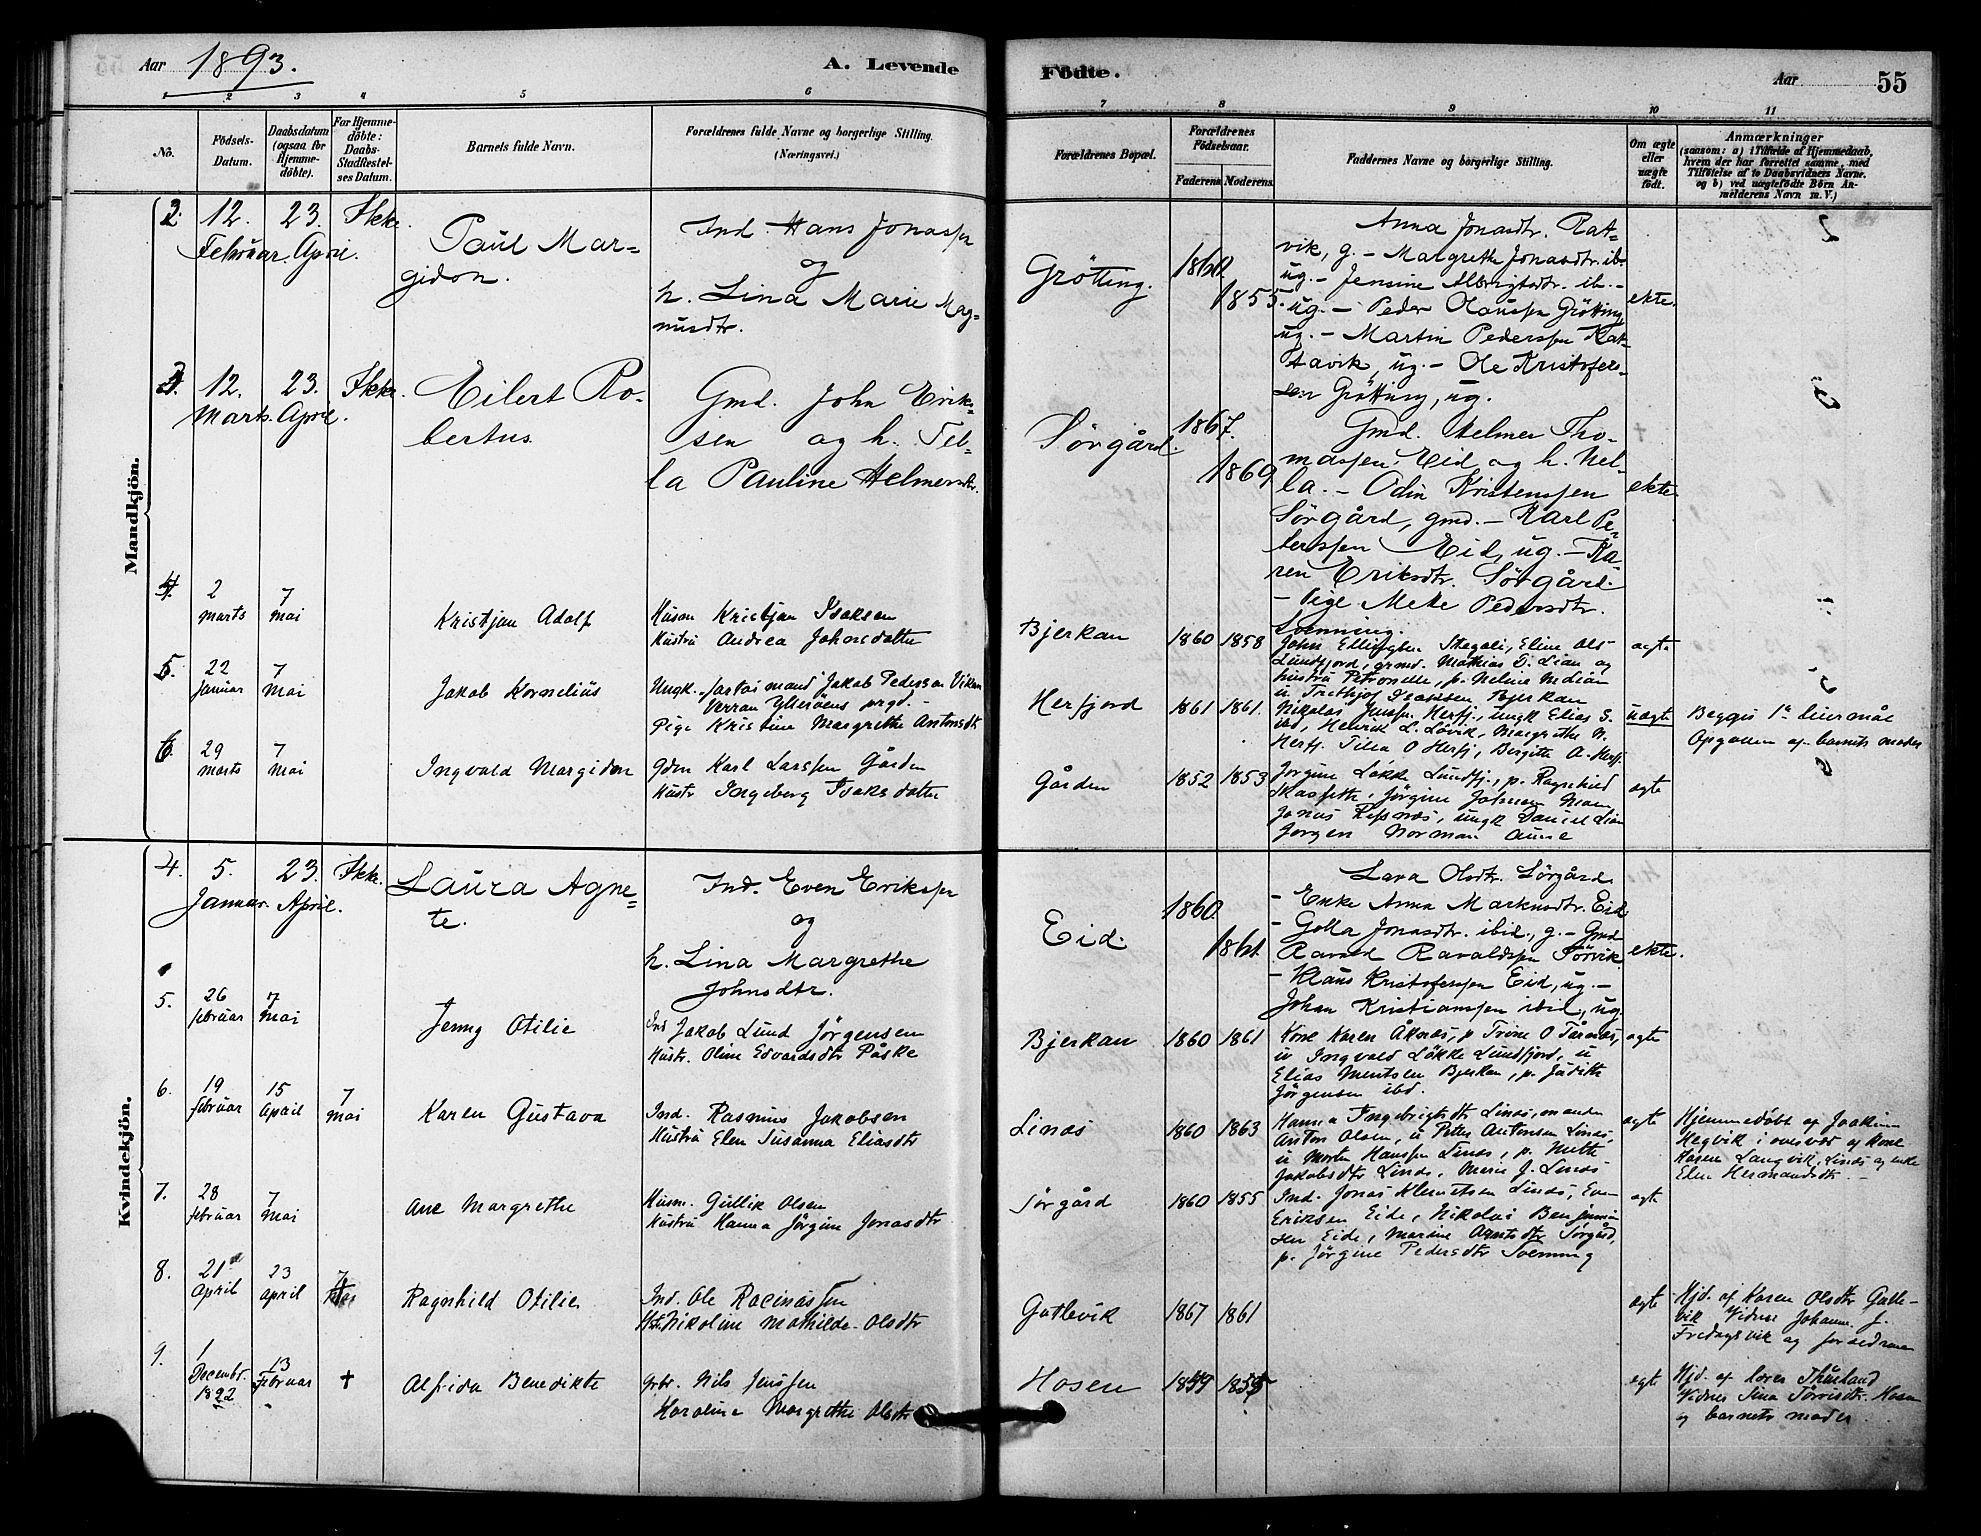 Aar 1893.
A. Levende
Födte.
Aar 55
1 2 3 4 5 6 7 8 9 10 11
No.
Födsels-
Datum.
Daabsdatum
(ogsaa for
Hjemme-
döbte).
For Hjemme-
döbte:
Daabs-
Stadfæstel-
ses Datum.
Barnets fulde Navn.
Forældrenes fulde Navne og borgerlige Stilling.
(Næringsvei.)
Forældrenes Bopæl.
Forældrenes
Födselsaar.
Faderens Moderens
Faddernes Navne og borgerlige Stilling.
Om ægte
eller
uægte
födt.
Anmærkninger
(saasom: a) i Tilfælde af Hjemmedaab,
hvem der har forrettet samme, med
Tilföielse af to Daabsvidners Navne.
og b) ved uægtefödte Börn An-
mélderens Navn m. V.)
Mandkjön.
2. 12. Februar.
23. April.
Ikke.
Paul Mar-
gidon.
Ind. Hans Jonassen
og
h. Lina Marie Mag-
nusdtr.
Grötting.
1860.
1855.
Anna Jonasdtr. Rat-
vik, g. - Margrethe Jonasdtr. ib.
ug. - Jensine Albrigtsdtr. ib. -
ug. - Peder Olaussen Grötting
ug. - Martin Pederssen Rat-
tavik, ug. - Ole Kristofers-
sen Grötting, ug.
ekte.
2
3. 12. Marts.
23. April.
Ikke.
Eilert Ro-
bertus.
Gmd. John Erik-
sen og h. Tel-
la Pauline Helmersdtr.
Sörgård.
1867.
1869
Gmd. Helmer Tho-
massen Eid og h. Nel-
la. - Odin Kristenssen
Sörgård, gmd. - Karl Pe-
derssen Eid, ug. - Ka-
ren Eriksdtr. Sörgård.
- Pige Mette Pedersdtr.
Svenning.
ekte.
3
4. 2 marts
7 mai
Kristjan Adolf
Husm Kristjan Isaksen
Hustru Andrea Johnsdatter
Bjerkan
1860 1858
John Ellingsen Skegali, Eline Ols-
Lundfjord, grmd. Mathias D. Lian og
hustru Petronelle, p. Nelina Median
u Fridthjof Isaksen Bjerkan
ægte
5. 22 Januar
7 Mai
Jakob Kornelius
Ungk. fartøimand Jakob Pedersen Vikan
Verran Ytterøens prgd. -
Pige Kristine Margrethe Antonsdtr
Herfjord
1861 1861.
Nikolai Jensen Herfj, ungk Elias S.
ibd, Henrik L. Løvik, Margrethe N.
Herfj. Tilla O Herfj, Birgitte A. Herfj.
uægte
Begges 1ste leiermål
Opgaven af barnets moder
5
6. 29 marts
7 Mai
Ingvald Margidon
Gdm Karl Larssen Gården
Hustr Ingeborg Isaksdatter
Gården
1852 1853
Jørgine Løkke Lundfj., p. Ragnhild
Skasseth, Jørgine Johnsen Nian,
Jonas Refsnæs, ungk Daniel Lian
Jørgen Norman Aune
ægte
6
Kvindekjön.
4. 5. Januar.
23. April.
Ikke.
Laura Agne-
te.
Ind. Even Erikssen
og
h. Lina Margrethe
Johnsdtr.
Eid.
1860.
1861.
Lava Olsdtr. Sörgård
- Enke Anna Markusdtr. Eid
- Golla Jonasdtr. ibid., g. - Gmd.
Ravald Ravaldssen Sörvik.
- Klaus Kristoferssen Eid, ug. -
Johan Kristianssen ibid, ug.
ekte.
5. 26 februar
7 Mai
Jenny Otilie
Ind Jakob Lund Jørgensen
Hustr. Oline Edvardsdtr Påske
Bjerkan
1860 1861
Kone Karen Åkernes, p Trine O Tårnes,
u Ingvald Løkke Lundfjord, u
Elias Mentsen Bjerkan, p. Judith
Jørgensen ibd.
ægte
6. 19 februar
15 April
7 mai
Karen Gustava
Ind. Rasmus Jakobsen
Hustru Elen Susanna Eliasdtr
Linæs
1860 1863
Hanna Ingebrigtsdtr Linæs,
Anton Olsen, u Petter Antonsen Linæs,
u Morten Hanssen Linæs, p. Mette
Jakobsdtr Linæs, Marie J. Linæs
ægte
Hjemmedøbt af Joakim
Hegvik i overvær af kone
Karen Langvik, Linæs og enke
Elen Hermandsdtr. -
7. 28 februar
7 Mai
Ane Margrethe
Husm. Gullik Olsen
Hustru Hanna Jørgine Jonasdtr
Sørgård
1860 1855
Ind. Jonas Klemetsen Linæs, Even
Eriksen Eide, Nikolai Benjamin
sen Eide, Marine Arntsdtr Sørgård,
p. Jørgine Pedersdtr Svenning
ægte
8. 21 April
23 April
7 Mai
Ragnhild Otilie
Ind. Ole Racinussen
H. Nikoline Mathilde Olsdtr
Gutlevik
1867 1861
ægte
Hjd. af Karen Olsdtr Gutle-
vik Vidner Johanne J.
Fredagsvik og forældrene
9. 1 Decembr. 1892
13 Februar
+
Alfrida Benedikte
grbr. Nils Jenssen
Karoline Margrethe Olsdtr
Hosen
1849 1855
egte
Hjd. af lærer Thusland
Vidner Sina Tørrisdtr. Hosen
og barnets moder.